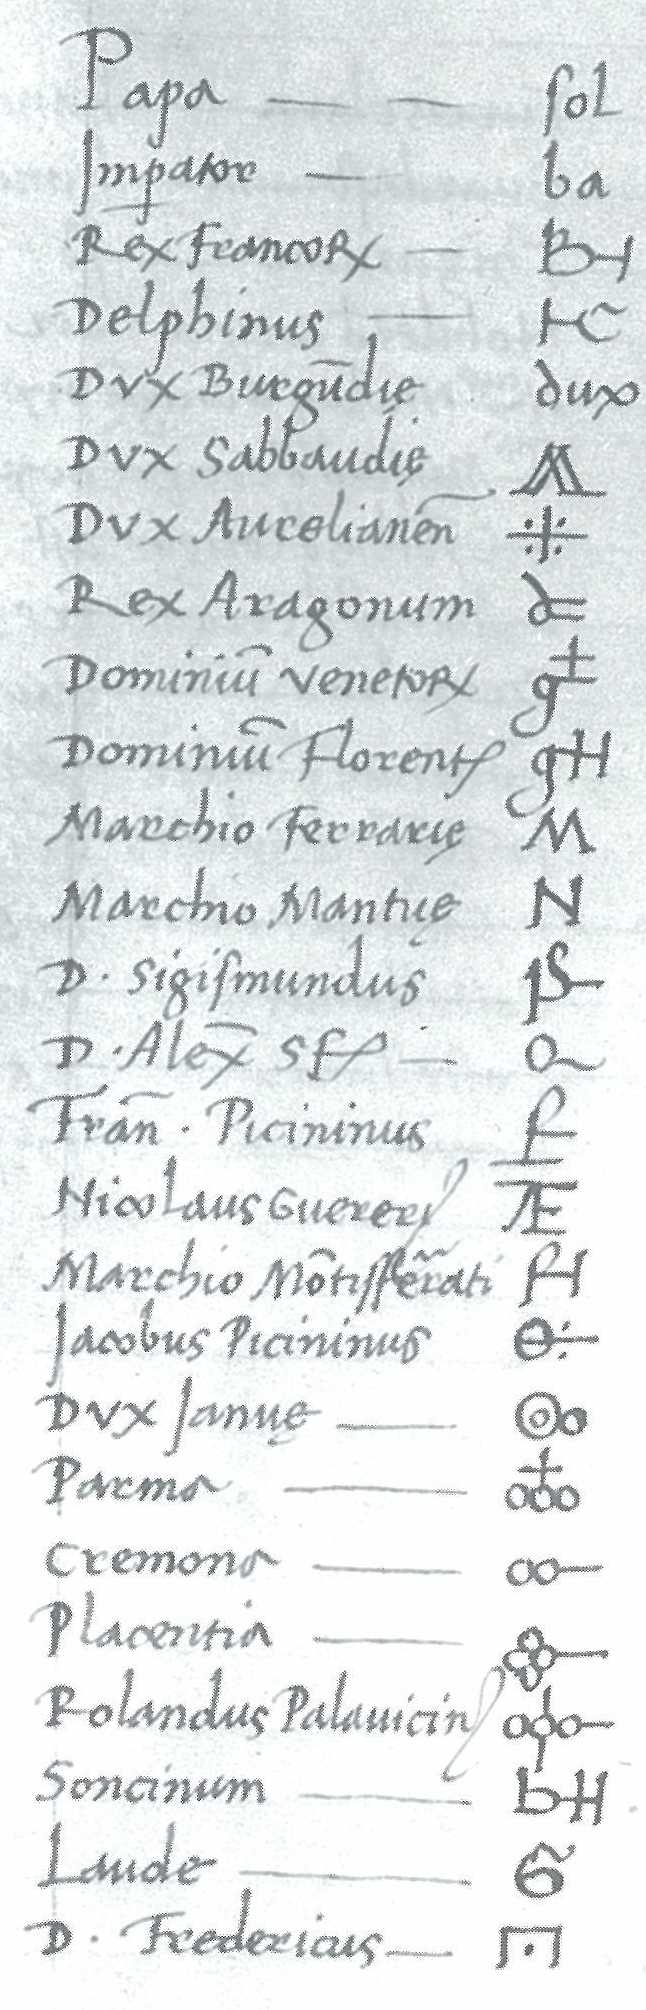 Papa — — sol
Impator — ba
Rex Francoꝝ —
Delphinus —
Dvx Burgūdię dux
Dvx Sabbaudię
Dvx Aurelianen̄
Rex Aragonum
Dominiū Venetoꝝ
Dominiū Florent
Marchio Ferrarię M
Marchio Mantuę N
D. Sigismundus
D. Alex̄ Sf —
Fran̄. Picininus
Nicolaus Guerer
Marchio Mōtisfer̄ati
Jacobus Picininus
Dvx Januę —
Parma —
Cremona —
Placentia —
Rolandus Palauicin
Soncinum —
Laude —
D. Fredericus —